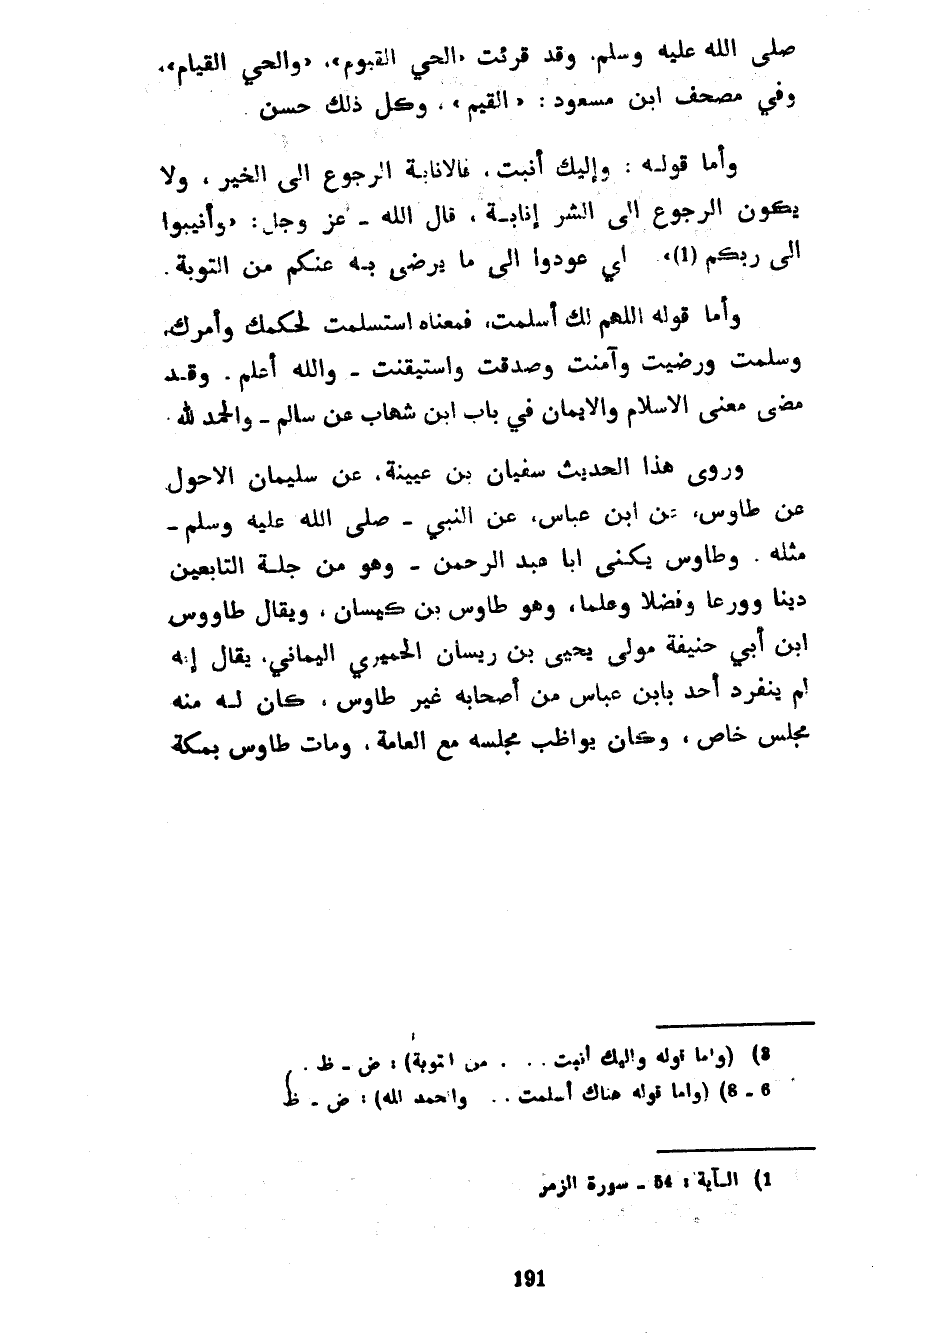 صلى الله عليه وسلم. وقد قرئت «الحي القيوم»، «والحي القيام»،
وفي مصحف ابن مسعود : « القيم » ، وكل ذلك حسن .
وأما قولـه : وإليك أنبت ، فالانابـة الرجوع الى الخير ، ولا
يكون الرجوع الى الشر إنابـة ، قال الله ـ عز وجل : «وأنيبوا
الى ربكم (1)» اي عودوا الى ما يرضى بـه عنكم من التوبة .
وأما قوله اللهم لك أسلمت، فمعناه استسلمت لحكمك وأمرك،
وسلمت ورضيت وآمنت وصدقت واستيقنت ـ والله أعلم . وقـد
مضى معنى الاسلام والايمان في باب ابن شهاب عن سالم ـ والحمد لله .
وروى هذا الحديث سفيان بن عيينة، عن سليمان الاحول
عن طاوس، عن ابن عباس، عن النبي ـ صلى الله عليه وسلم ـ
مثله . وطاوس يكنى ابا عبد الرحمن ـ وهو من جلـة التابعين
دينا وورعا وفضلا وعلما، وهو طاوس بن كيسان ، ويقال طاووس
ابن أبي حنيفة مولى يحيى بن ريسان الحميري اليماني، يقال إنه
لم ينفرد أحد بابن عباس من أصحابه غير طاوس ، كان لـه منه
مجلس خاص ، وكان يواظب مجلسه مع العامة ، ومات طاوس بمكة
3) (واما قوله واليك أنبت . . . . من التوبة) : ض ـ ظ .
6 ـ 8) (واما قوله هناك أسلمت . . والحمد لله) : ض ـ ظ
1) الـآية : 54 ـ سورة الزمر
191